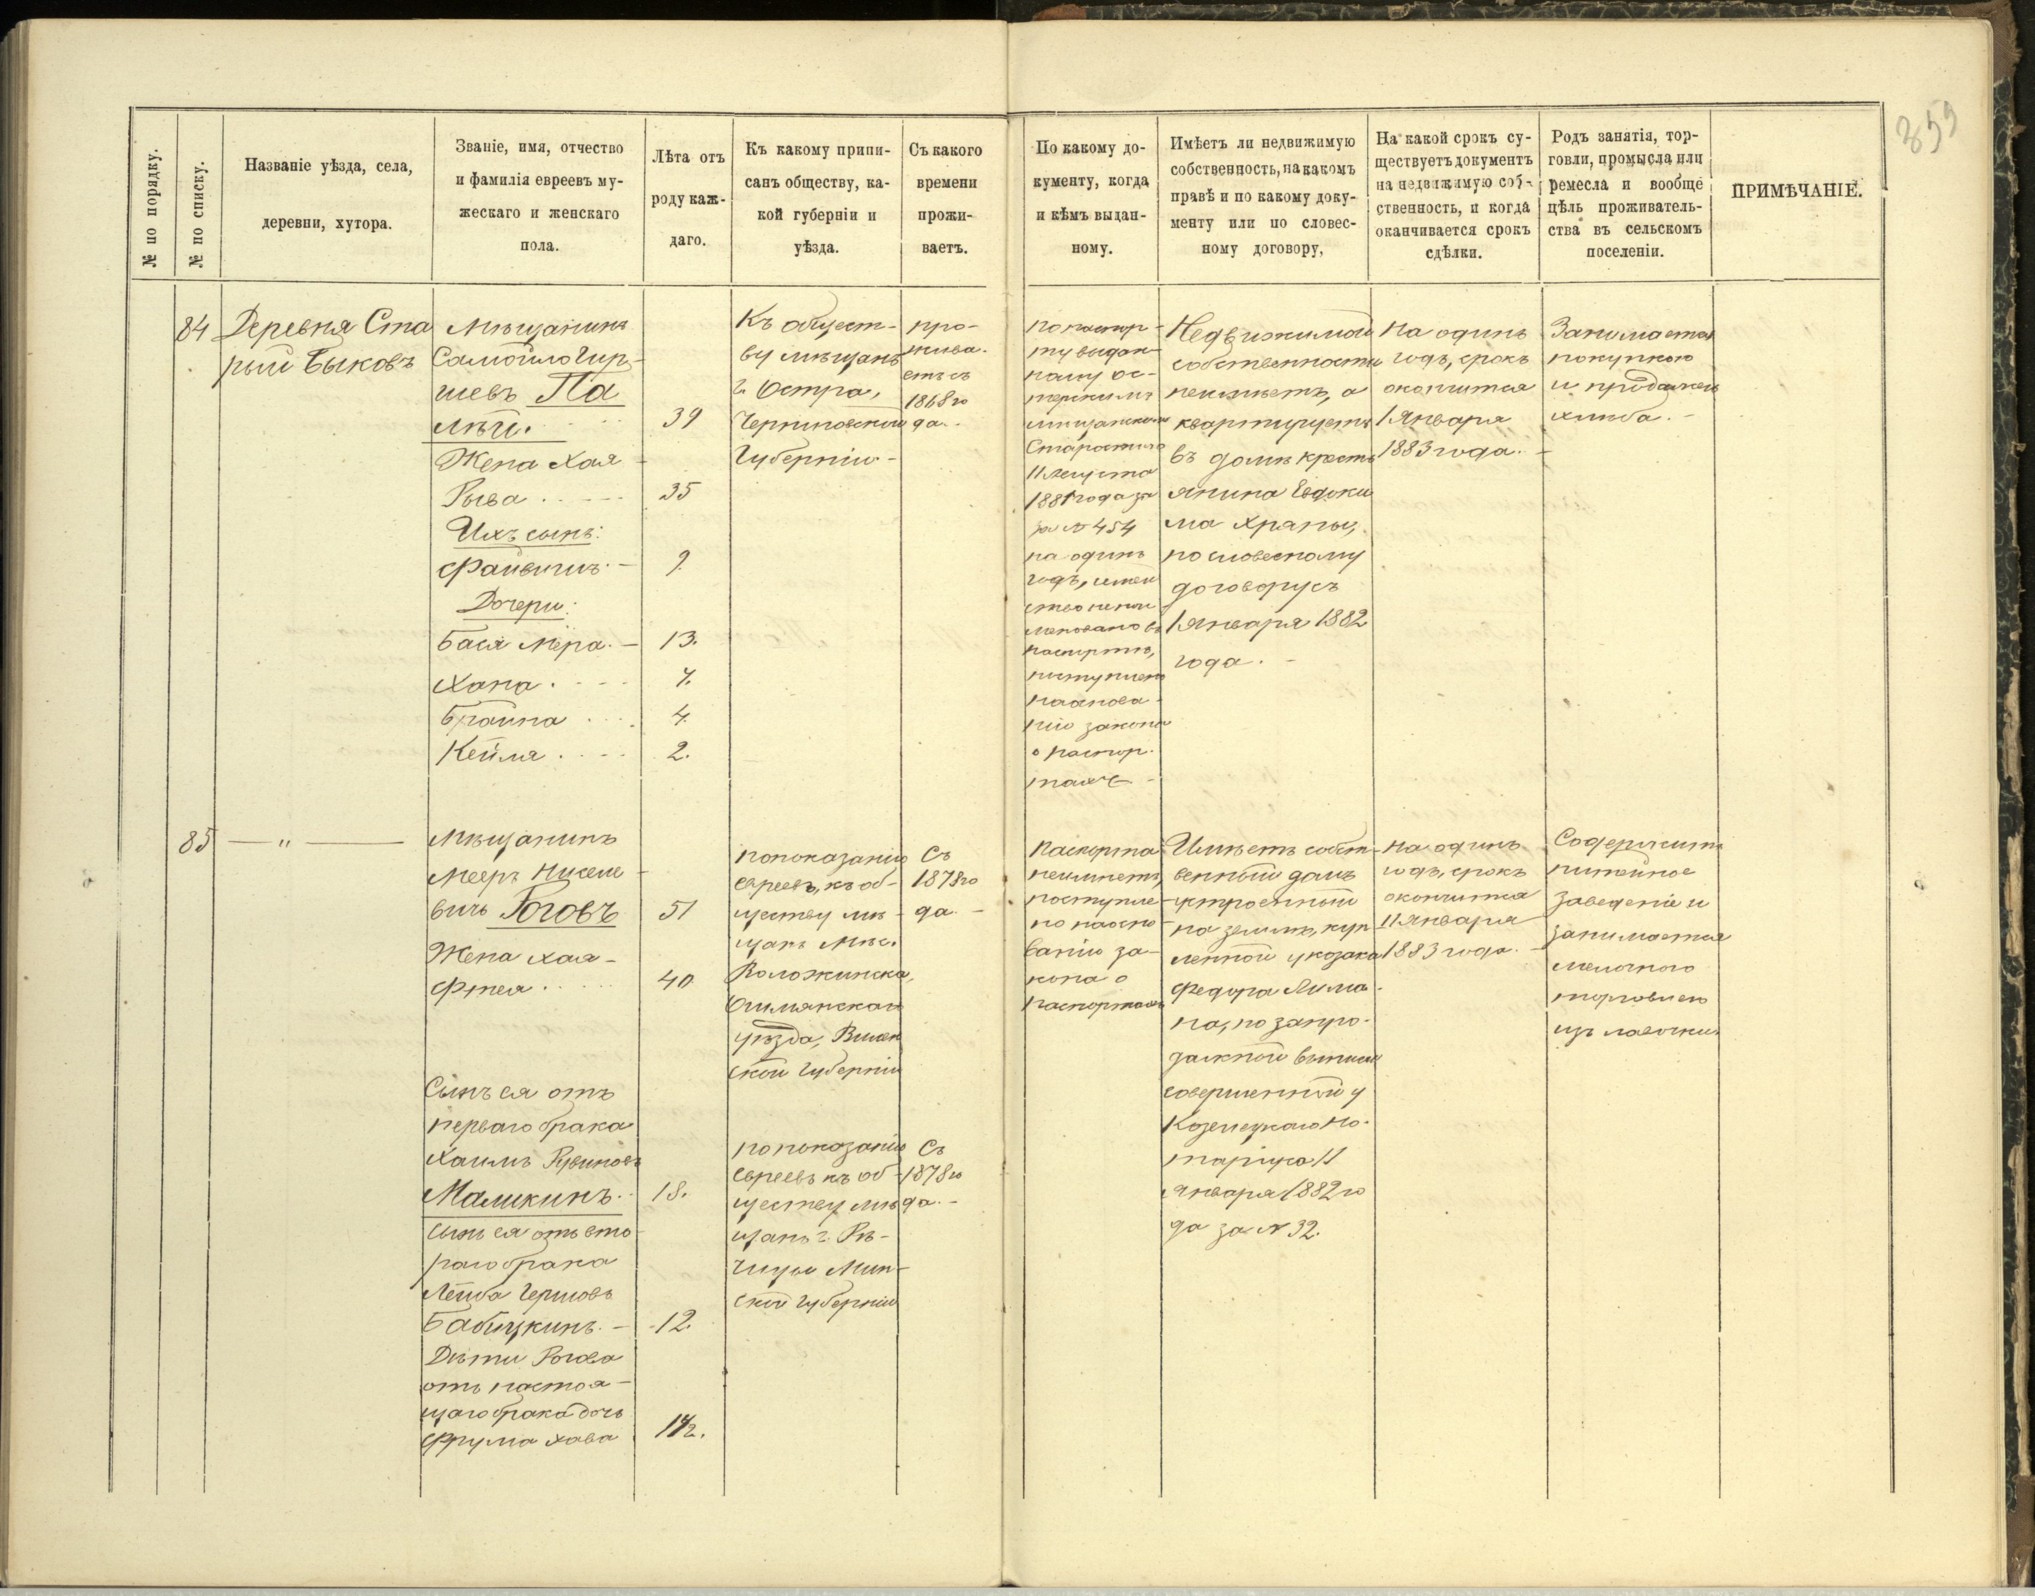 359
№ по порядку.
№ по списку.
Названіе уѣзда, села,
деревни, хутора.
Званіе, имя, отчество
и фамилія евреевъ му-
жескаго и женскаго
пола.
Лѣта отъ
роду каж-
даго.
Къ какому припи-
санъ обществу, ка-
кой губерніи и
уѣзда.
Съ какого
времени
прожи-
ваетъ.
По какому до-
кументу, когда
и кѣмъ выдан-
ному.
Имѣетъ ли недвижимую
собственность, на какомъ
правѣ и по какому доку-
менту или по словес-
ному договору,
На какой срокъ су-
ществуетъ документъ
на недвижимую соб-
ственность, и когда
оканчивается срокъ
сдѣлки.
Родъ занятія, тор-
говли, промысла или
ремесла и вообще
цѣль проживатель-
ства въ сельскомъ
поселеніи.
ПРИМѢЧАНІЕ.
84
Деревня Ста
рый Быковъ
Мѣщанинъ
Самойло Гир-
шевъ Па
лѣй. 39
Жена Хая -
Рыва 35
Ихъ сынъ:
Файвишъ. - 9.
Дочери:
Бася Мера. - 13.
Хана 7.
Браина 4.
Кейля 2.
Къ общест-
ву мѣщанъ
г. Остра,
Черниговской
Губерніи -
про-
жива-
етъ съ
1868 го
да. -
по паспор-
ту выдан-
ному Ос-
терскимъ
мѣщанскимъ
Старостою
11 Августа
1881 года за
за № 454
на одинъ
годъ, семей
ство непои
меновано въ
паспортѣ,
поступлено
на основа-
ніи закона
о паспор-
тахъ -
Недвижимой
собственности
неимѣетъ, а
квартируетъ
въ домѣ кресть
янина Евдоки
ма Храпы,
по словесному
договору съ
1 Января 1882
года. -
На одинъ
годъ, срокъ
окончится
1 Января
1883 года. -
Занимается
покупкою
и продажею
хлѣба. -
85 — " —
Мѣщанинъ
Мееръ Нисене -
вичъ Роговъ 51
Жена Хая -
Фтея 40
Сынъ ея отъ
перваго брака
Хаимъ Рувиновъ
Маликинъ. 18.
Сынъ ея отъ вто -
раго брака
Лейба Гершовъ
Бабицкинъ. - 12.
Дѣти Рогова
отъ настоя -
щаго брака дочь
Фрума Хава 1½.
по показанію
евреевъ, къ об-
ществу мѣ -
щанъ Мѣс.
Воложинска,
Ошмянскаго
уѣзда, Вилен
ской Губерніи
Съ
1878 го
да. -
по показанію
Евреевъ къ об -
ществу мѣ
щанъ г. Рѣ-
чицы Мин-
ской Губерніи
Съ
1878 го
да. -
Паспорта
неимѣетъ,
поступле -
но на осно -
ваніи за-
кона о
паспортахъ
Имѣетъ собст-
венный домъ
устроенный
на землѣ, куп
ленной у козака
Федора Лима -
на, по запро-
дажной выписи
совершенной у
Козелецкаго Но-
таріуса 11
Января 1882 го
да за № 32.
На одинъ
годъ, срокъ
окончится
11 Января
1883 года. -
Содержитъ
питейное
заведеніе и
занимается
мелочною
торговлею
изъ лавочки